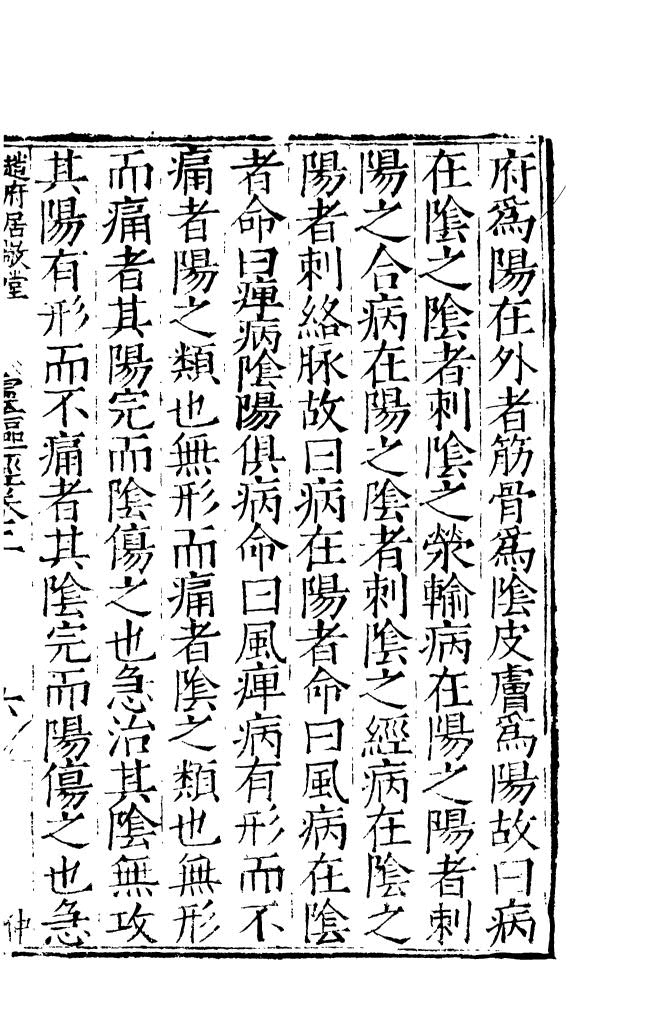 府爲陽在外者筋骨爲陰皮膚爲陽故曰病
在陰之陰者刺陰之滎輸病在陽之陽者刺
陽之合病在陽之陰者刺陰之經病在陰之
陽者刺絡脉故曰病在陽者命曰風病在陰
者命曰痺病陰陽俱病命曰風痺病有形而不
痛者陽之類也無形而痛者陰之類也無形
而痛者其陽完而陰傷之也急治其陰無攻
其陽有形而不痛者其陰完而陽傷之也急
趙府居敬堂
六
仲